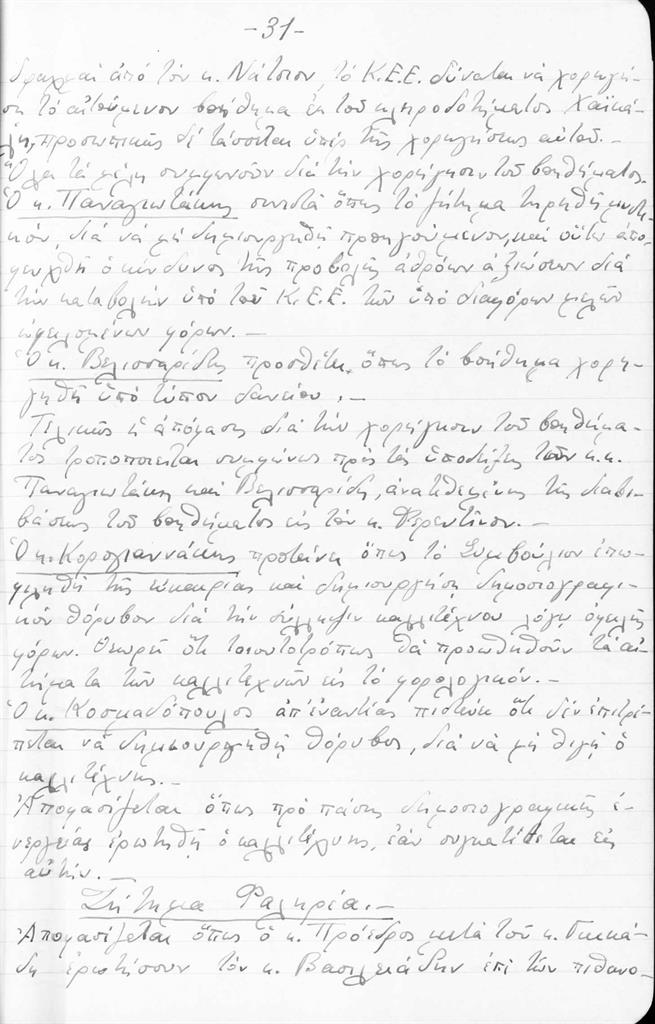 -31-
δραχμαί από τον κ. Νάτσιον, το Κ.Ε.Ε. δύναται να χορηγή-
ση το αιτούμενον βοήθημα εκ του κληροδοτήματος Χαϊκά-
λη, προσωπικώς δε τάσσεται υπέρ της χορηγήσεως αυτού.-
Όλα τα μέλη συμφωνούν διά την χορήγησιν του βοηθήματος.
Ο κ. Παναγιωτάκης συνιστά όπως το ζήτημα τηρηθή μυστι-
κόν, διά να μη δημιουργηθή προηγούμενον, και ούτω απο-
φευχθή ο κίνδυνος της προβολής αθρόων αξιώσεων διά
την καταβολήν υπό του Κ.Ε.Ε. των υπό διαφόρων μελών
οφειλομένων φόρων.-
Ο κ. Βελισσαρίδης προσθέτει, όπως το βοήθημα χορη-
γηθή υπό τύπον δανείου.-
Τελικώς η απόφασις διά την χορήγησιν του βοηθήμα-
τος τροποποιείται συμφώνως προς τας υποδείξεις των κ.κ.
Παναγιωτάκη και Βελισσαρίδη, ανατεθειμένης της διαβι-
βάσεως του βοηθήματος εις τον κ. Φερεντίνον.-
Ο κ. Κορογιαννάκης προτείνει όπως το Συμβούλιον επω-
φεληθή της ευκαιρίας και δημιουργήση δημοσιογραφι-
κόν θόρυβον διά την σύλληψιν καλλιτέχνου λόγω οφειλής
φόρων. Θεωρεί ότι τοιουτοτρόπως θα προωθηθούν τα αι-
τήματα των καλλιτεχνών εις το φορολογικόν.-
Ο κ. Κοσμαδόπουλος απ' εναντίας πιστεύει ότι δεν επιτρέ-
πεται να δημιουργηθή θόρυβος, διά να μη θιγή ο
καλλιτέχνης.-
Αποφασίζεται όπως προ πάσης δημοσιογραφικής ε-
νεργείας ερωτηθή ο καλλιτέχνης, εάν συγκατίθεται εις
αυτήν.-
Ζήτημα Φαληρέα.-
Αποφασίζεται όπως ο κ. Πρόεδρος μετά του κ.
δη ερωτήσουν τον κ. Βασιλειάδην επί των πιθανο-